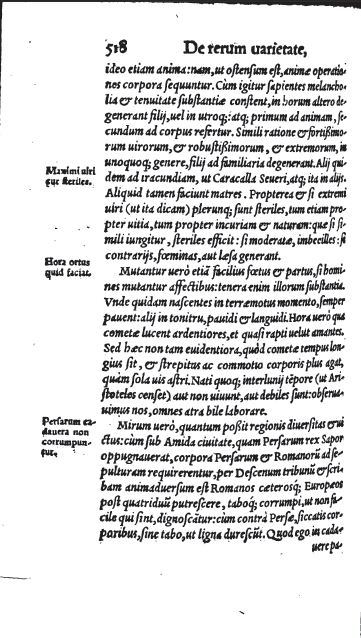 518 De rerum uarietate,
ideo etiam anima: nam, ut ostensum est, animæ operatio-
nes corpora sequuntur. Cùm igitur sapientes melancho-
lia & tenuitate substantiæ constent, in horum altero de-
generant filij, uel in utroq;: atq; primum ad animam, se-
cundum ad corpus refertur. Simili ratione & fortißimo-
rum uirorum, & robustißimorum, & extremorum, in
unoquoq; genere, filij ad familiaria degenerant. Alij qui-
Maximi uiri
dem ad iracundiam, ut Caracalla Seueri, atq; ita in alijs.
quæ steriles.
Aliquid tamen faciunt matres. Propterea & si extremi
uiri (ut ita dicam) plerunq; sunt steriles, tum etiam pro-
pter uitia, tum propter incuriam & naturam: quæ si si-
mili iungitur, steriles efficit: si moderatæ, imbecilles: si
contrarijs, fœminas, aut læsa generant.
Hora ortus
quid faciat.
Mutantur uerò etiã facilius fœtus & partus, si homi-
nes mutantur affectibus: tenera enim illorum substantia.
Vnde quidam nascentes in terræmotus momento, semper
pauent: alij in tonitru, pauidi & languidi. Hora uerò qua
cometæ lucent ardentiores, et quasi rapti uelut amantes.
Sed hæc non tam euidentiora, quòd cometæ tempus lon-
gius sit, & strepitus ac commotio corporis plus agat,
quàm sola uis astri. Nati quoq; interlunij tẽpore (ut Ari-
stoteles censet) aut non uiuunt, aut debiles sunt: obserua-
uimus nos, omnes atra bile laborare.
Persarum ca-
dauera non
corrumpun-
tur.
Mirum uerò, quantum poßit regionis diuersitas & ui
ctus: cùm sub Amida ciuitate, quam Persarum rex Sapor
oppugnauerat, corpora Persarum & Romanorũ ad se-
pulturam requirerentur, per Descenum tribunũ & scri-
bam animaduersum est Romanos cæterosq; Europæos
post quatriduũ putrescere, taboq; corrumpi, ut non fa-
cile qui sint, dignoscãtur: cùm contrà Persæ, siccatis cor-
poribus, sine tabo, ut ligna durescũt. Quod ego in cada-
uere pa-